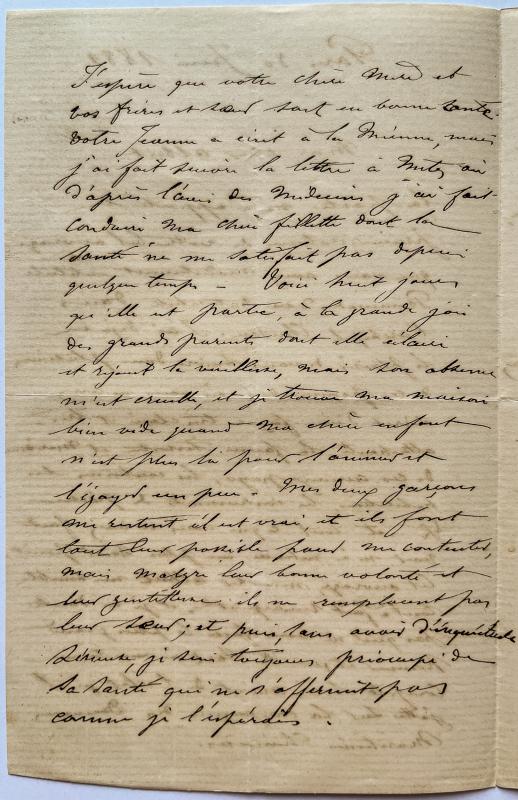 J'espère que votre chère Mère et
vos frères et sœur sont en bonne santé.
Votre Jeanne a écrit à la Mienne, mais
j'ai fait suivre la lettre à Metz où
d'après l'avis des Médecins j'ai fait
conduire ma chère fillette dont la
santé ne me satisfait pas depuis
quelque temps - Voici huit jours
qu'elle est partie, à la grande joie
des grands parents dont elle éclaire
et réjouit la vieillesse, mais son absence
m'est cruelle, et je trouve ma maison
bien vide quand ma chère enfant
n'est plus là pour l'animer et
l'égayer un peu - Mes deux garçons
me restent il est vrai, et ils font
tout leur possible pour me contenter,
mais malgré leur bonne volonté et
leur gentillesse ils ne remplacent pas
leur sœur; et puis, sans avoir d'inquiétude
sérieuse, je suis toujours préoccupé de
sa santé qui ne s'affermit pas
comme je l'espérais.